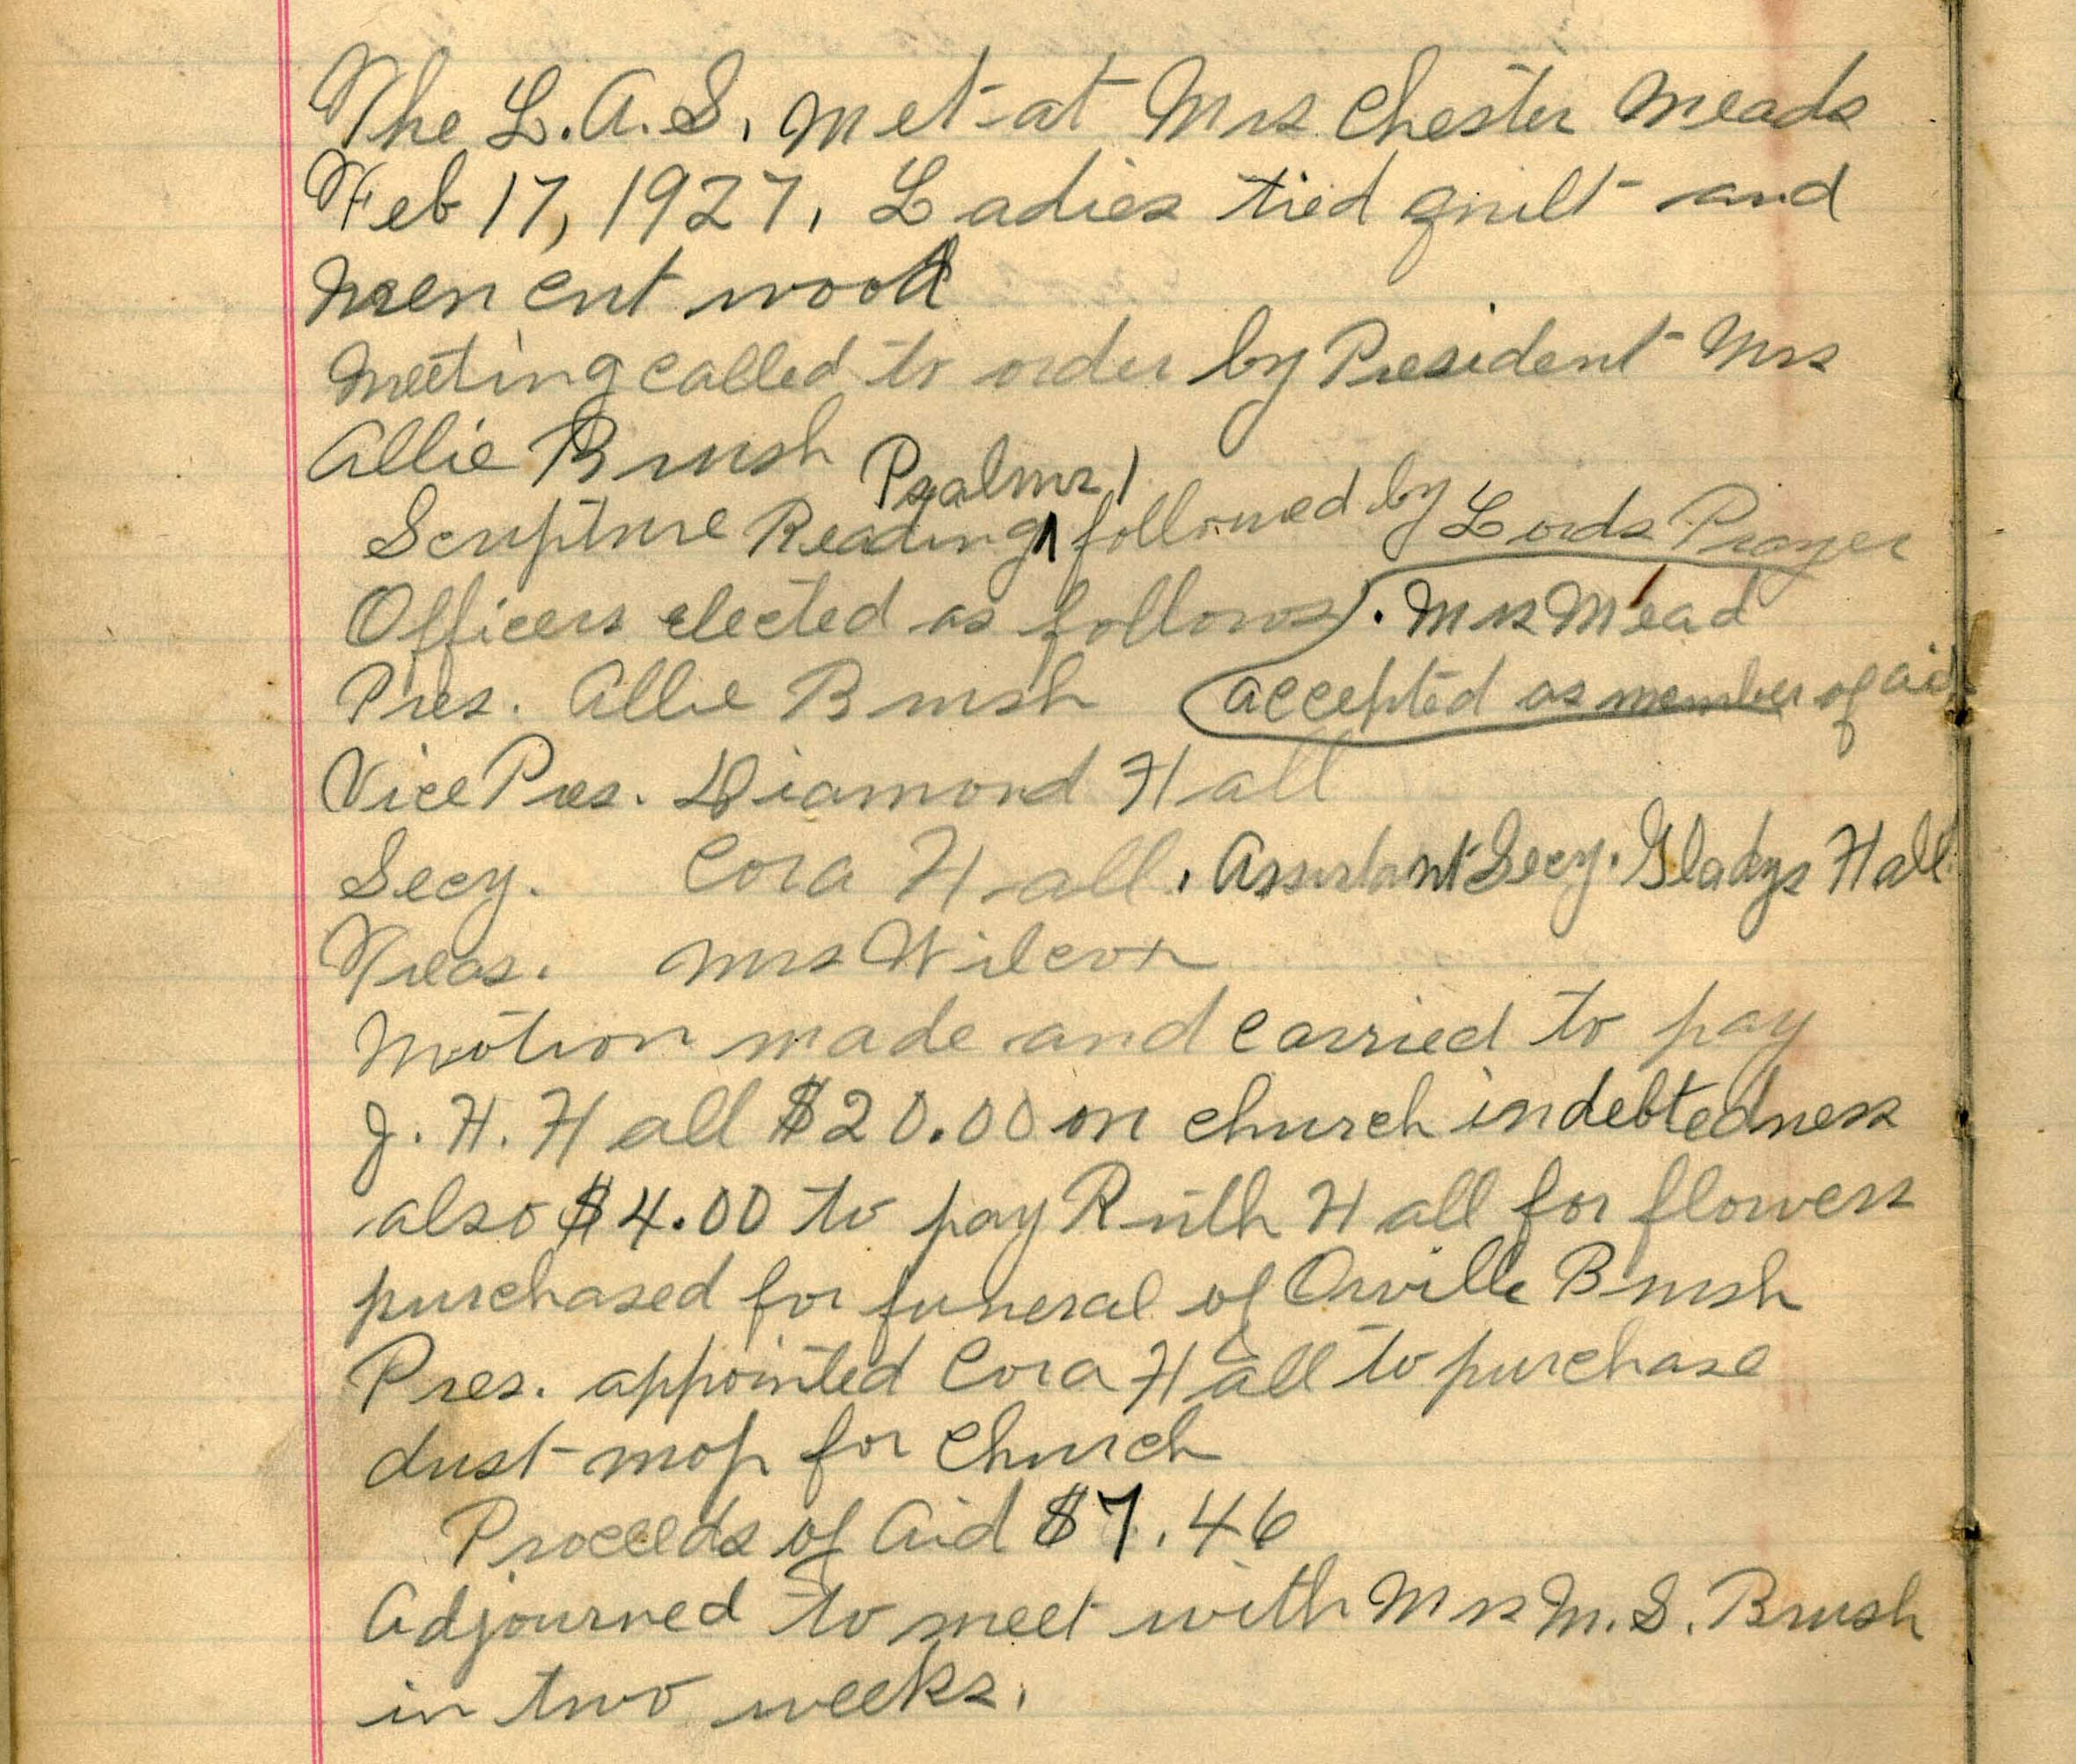 The L.A.S. met at Mrs Chester Meads
Feb 17, 1927. Ladies tied quilt and
men cut wood
Meeting called to order by President Mrs
Allie Brush
Psalms 1
Scripture Reading ∧ followed by Lords Prayer
Officers elected as follows. Mrs Mead
Pres. Allie Brush accepted as member of aid
Vice Pres. Diamond Hall
Secy. Cora Hall. Assistant Secy. Gladys Hall
Treas. Mrs Wilcox
Motion made and carried to pay
J. H. Hall $20.00 on church indebtedness
also $4.00 to pay Ruth Hall for flowers
purchased for funeral of Orville Brush
Pres. appointed Cora Hall to purchase
dust mop for Church
Proceeds of Aid $7.46
Adjourned to meet with Mrs M. S. Brush
in two weeks.